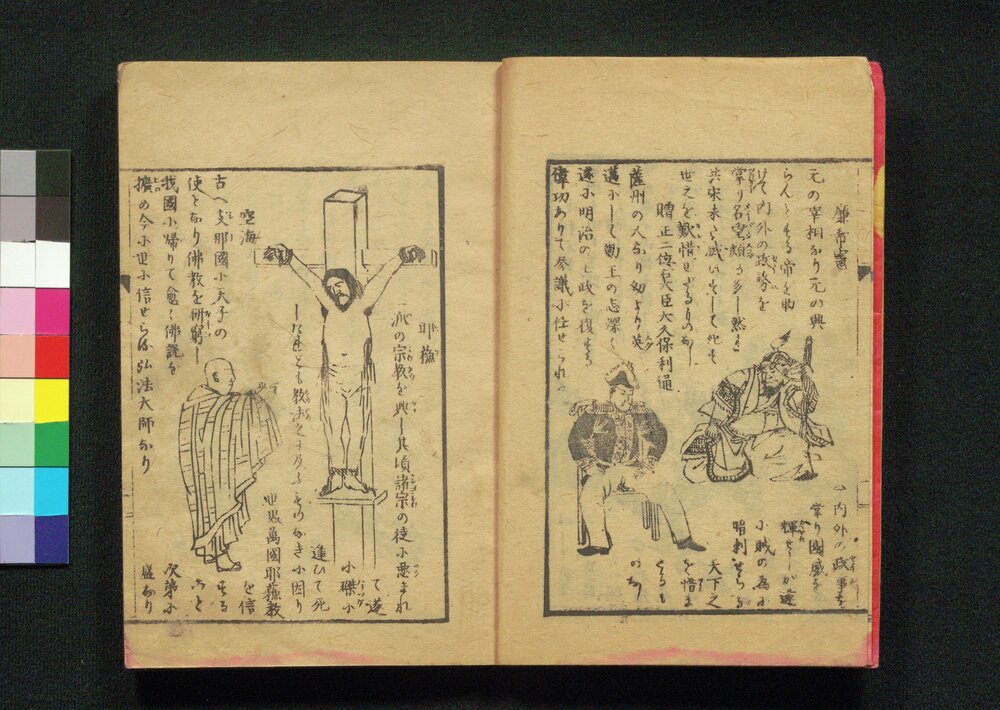 廉希憲
元の宰相なり元の興
らんとする帝を助
けて内外の政務を
掌り名望頗る多し然
共宋未
世之を歎惜せざるものなし
贈正二位右大臣大久保利通
薩州の人なり幼より英
邁にして勤王の志深く
遂に明治の王政を復する
偉功ありて参議に仕せられ
内外の政事を
掌り國威を
輝せしが
小賊の為に
暗刺せらる
天下之
を惜ま
ざるも
のなし
耶蘇
一派の宗教を興し其頃諸宗の徒に悪まれ
て遂
に磔に
逢ひて死
したれども教法
なきに因り
世界萬國耶蘇教
を信
ずる
こと
空海
古へ支那國に天子の
使となり佛教を研窮し
我國に帰りて愈々佛説を
擴め今に世に信せらる弘法大師なり
次第に
盛なり